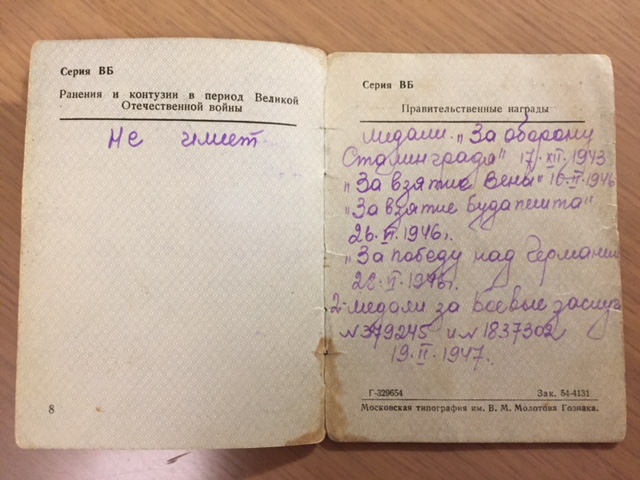 Серия ВБ
Ранения и контузии в период Великой
Отечественной войны
Не имеет
8
Серия ВБ
Правительственные награды
медали „За оборону
Сталинграда" 17. XII. 1943
„За взятие Вены" 16.II.1946
„За взятие Будапешта"
26. VI. 1946г.
„За победу над Германи
VI. 1946г.
2-медали за боевые заслуг
N379245 и N1837302
19. II. 1947г.
Г-329654 Зак. 54-4131
Московская типография им. В. М. Молотова Гознака.